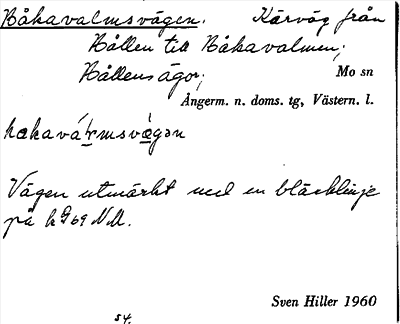 Båkavalmsvägen. Kärväg från
Bållen till Båkavalmen;
Bållens ägor; Mo sn
Ångerm. n. doms. tg, Västern. l.
Vägen utmärkt med en bläcklinje
på
Sven Hiller 1960
s4.